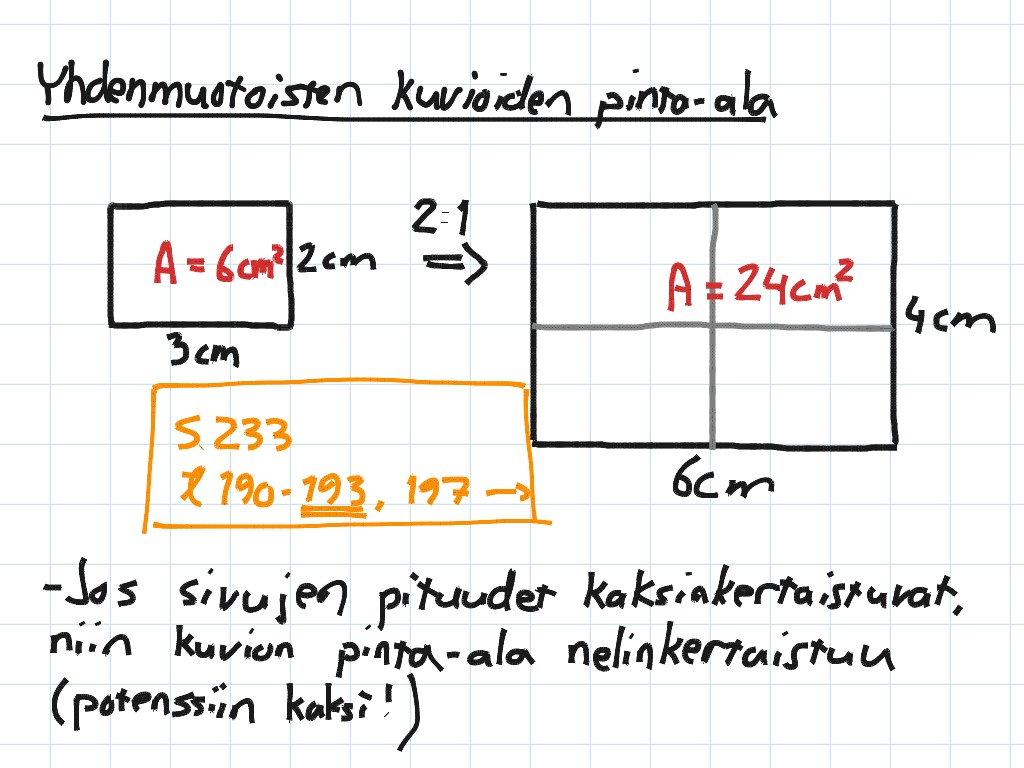 Yhdenmuotoisten kuvioiden pinta-ala
2:1
A = 6cm² 2cm
⇒
A = 24cm²
4cm
3cm
S 233
t 190-193, 197 →
6cm
-Jos sivujen pituudet kaksinkertaistuvat,
niin kuvion pinta-ala nelinkertaistuu
(potenssiin kaksi!)